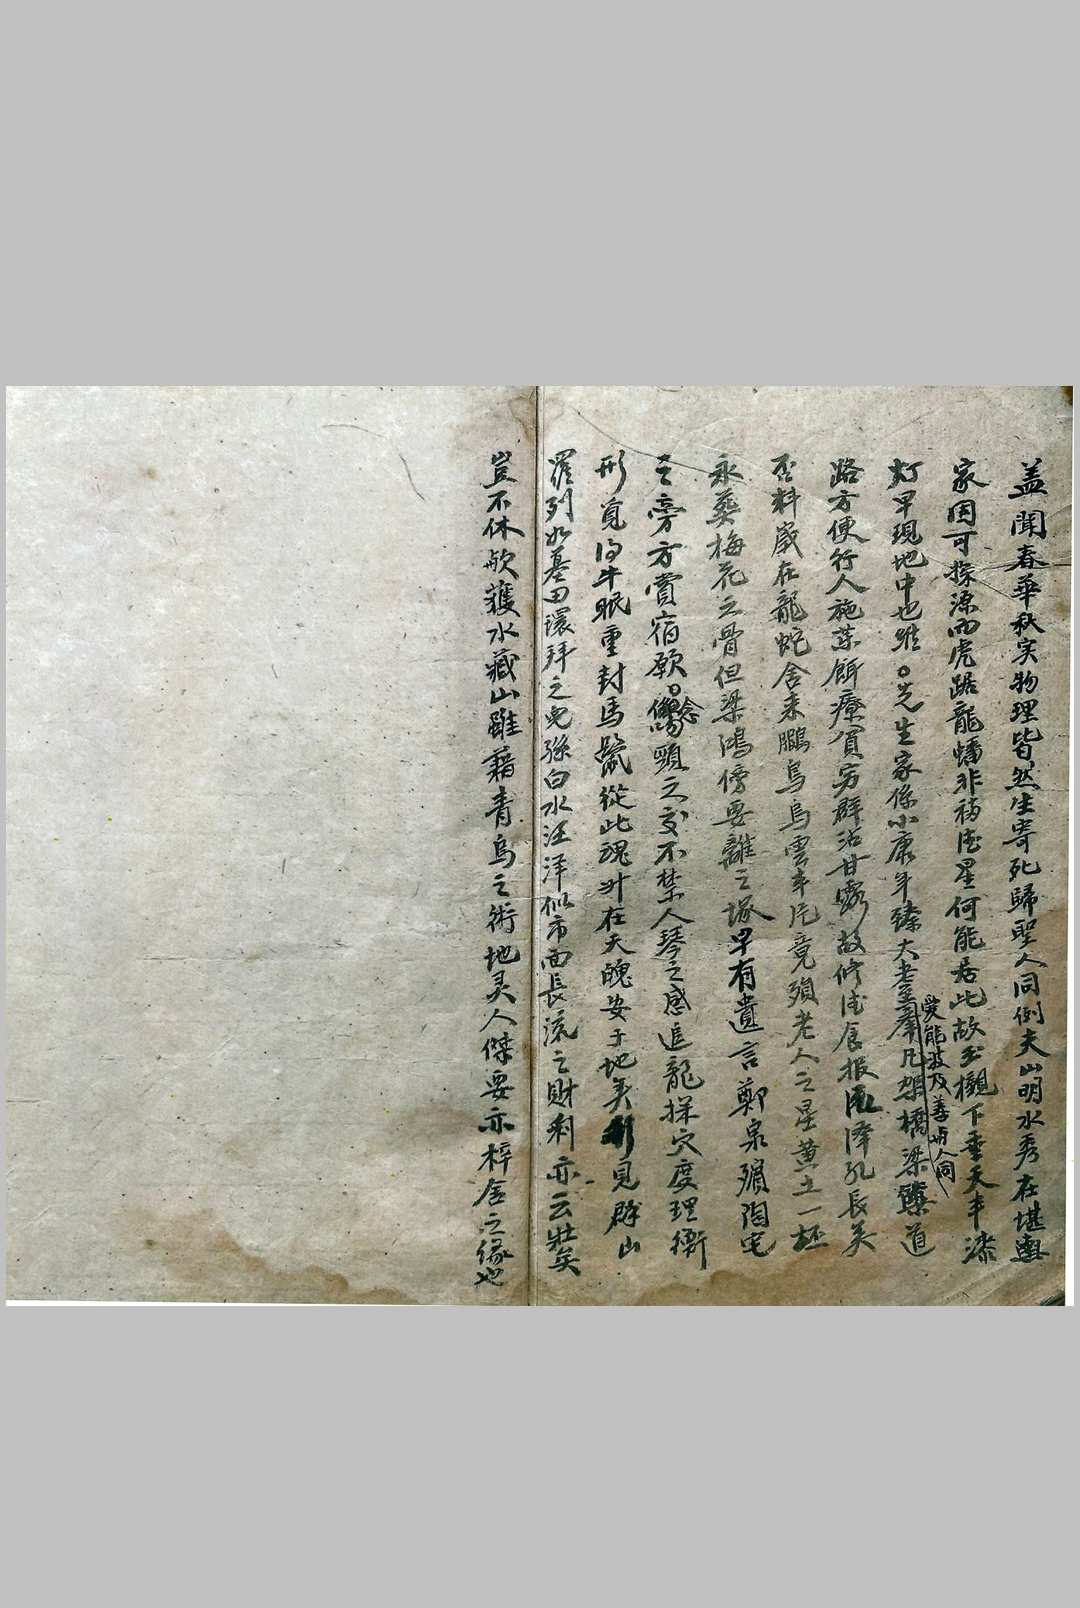 盖闻春華秋实物理皆然生寄死歸聖人同例夫山明水秀在堪輿
家固可探源而虎踞龍蟠非福德星何能居此故玉櫬下垂天丰漆
灯早現地中也惟○先生家係小康年臻大耋凡架橋梁築道
愛能波及善与人同
路方便行人施葯餌療貧穷群沾甘露故修德食报滙泽孔長矣
丕料歲在龍蛇舍来鵬鳥烏雲半片竟殞老人之星黄土一坯
永葬梅花之骨但梁鴻傍要離之塚早有遺言鄭泉殯陶宅
之旁方賞宿願○念頸之交不禁人琴之感追龍探穴度理衡
形覓得牛眠重封馬鬣從此魂升在天魄安于地矣見群山
羅列如墓田環拜之兒孫白水汪洋似市面長流之財利亦云壯矣
豈不休欤獲水藏山雖藉青烏之術地灵人傑要亦梓舍之缘也